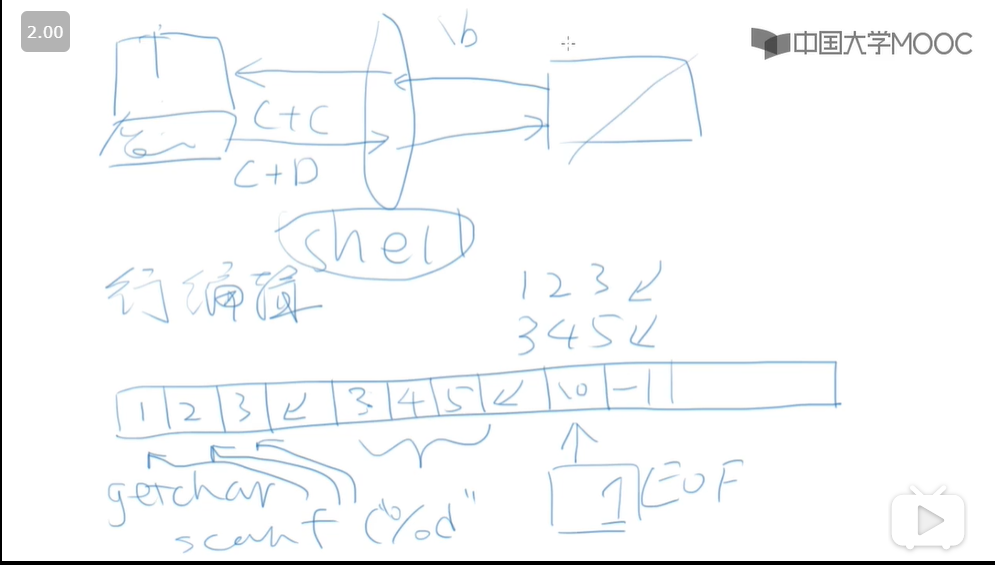 2.00
\b
中国大学MOOC
C+C
C+D
shell
行编辑
123↙
345↙
1 2 3 ↙ 3 4 5 ↙ \0 -1
getchar
1 EOF
scanf ("%d"